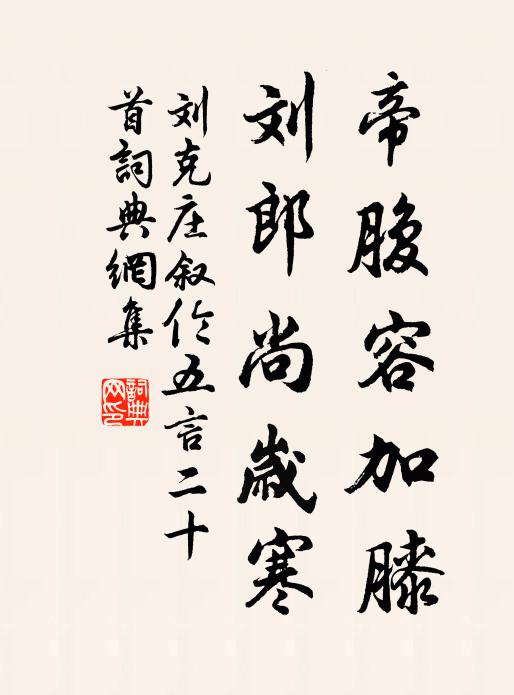 帝腹容加膝
刘郎尚岁寒
刘克庄叙伦五言二十
首詞典網集
詞典網印